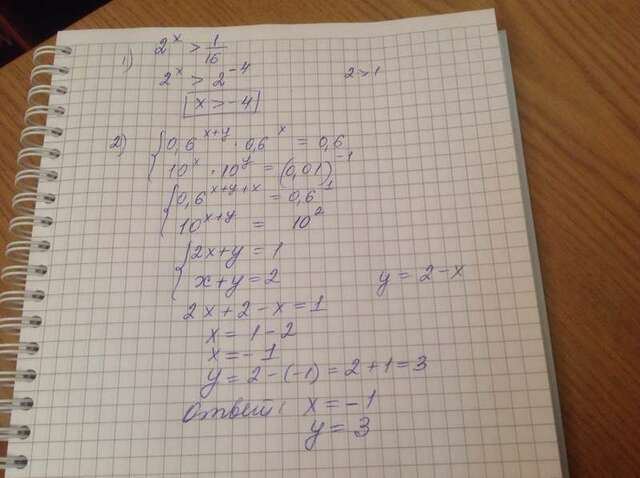 1) 2^x > 1/16
2^x > 2^-4    2 > 1
x > -4
2) { 0,6^x+y · 0,6^x = 0,6
10^x · 10^y = (0,01)^-1
{ 0,6^x+y+x = 0,6^1
10^x+y = 10^2
{ 2x+y = 1
x+y = 2    y = 2-x
2x+2-x=1
x = 1-2
x = -1
y = 2-(-1) = 2+1 = 3
Ответ: x = -1
y = 3